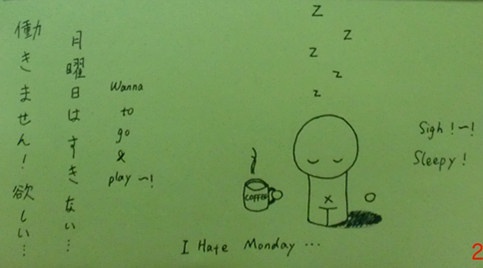 Z
Z
Z
Z
Z
月曜日はすきない…
働きません!欲しい…
Wanna
to
go
&
play ~!
Sigh!~!
Sleepy!
COFFEE
I Hate Monday ...
2